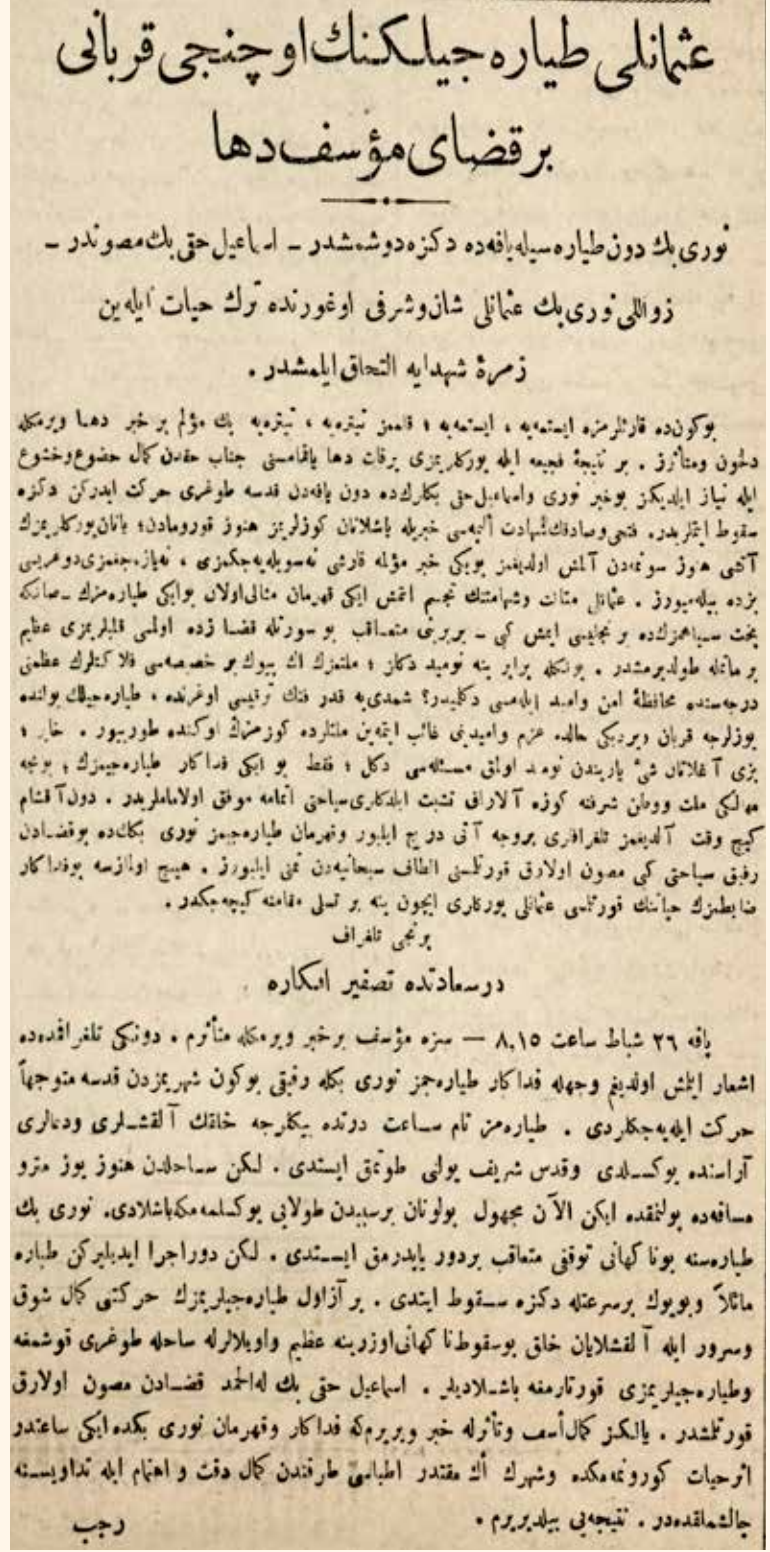 عثمانلی طیاره جیلكنك اوچنجی قربانی
بر قضای مؤسف دها
نوری بك دون طیاره سیله یافه ده دكزه دوشمشدر ـ اسماعیل حقی بك مصوندر ـ
زواللی نوری بك عثمانلی شان وشرفی اوغورنده ترك حیات ایله ین
زمرۀ شهدایه التحاق ایلمشدر .
بوكون ده قارئلرمزه ایستمه یه ، ایستمه یه ؛ قلممز تیتره یه ، تیتره یه پك مؤلم بر خبر دها ویرمكله
دلخون ومتأثرز . بر نتیجۀ فجیعه ایله یوركلریمزی برقات دها یاقمامسنی جناب حقدن كمال خضوع وخشوع
ایله نیاز ایلدیكمز بوخبر نوری واسماعیل حقی بكلرك ده دون یافه دن قدسه طوغری حركت ایدركن دكزه
سقوط ایتملریدر. فتحی وصادقك شهادت الیمه سی خبریله یاشلانان كوزلریمز هنوز قورومادن؛ یانان یوركلریمزك
آتشی هنوز سونمه دن آلمش اولدیغمز بویكی خبر مؤلمه قارشی نه سویله یه جكمزی ، نه یازه جغمزی دوغریسی
بزده بیله میورز . عثمانلی متانت وشهامتنك تجسم ایتمش ایكی قهرمان مثالی اولان بوایكی طیاره مزك ـ صانكه
بخت سیاهمزك ده بر تجلیسی ایمش كبی ـ بربرینی متعاقب بو صورتله قضا زده اولمسی قلبلریمزی عظیم
بر ماتمله طولدیرمشدر . بونكله برابر ینه نومید دكلز ؛ ملتمزك اك بیوك بر خصیصه سی فلاكتلرك عظمتی
درجه سنده محافظۀ امن وامید ایله مسی دكلمیدر؟ شمدی یه قدر فنك ترقیسی اوغرنده ، طیاره جیلك یولنده
یوزلرجه قربان ویردیكی حالده عزم وامیدینی غائب ایتمه ین ملتلرده كوزمزك اوكنده طورییور . خایر ؛
بزی آغلاتان شی یاریندن نومید اولمق مسئله سی دكل ؛ فقط بو ایكی فداكار طیاره جیمزك ، بونجه
مهالكی ملت ووطن شرفنه كوزه آلارق تشبث ایلدكلری سیاحتی اتمامه موفق اولاماملریدر . دون آقشام
كیچ وقت آلدیغمز تلغرافلری بروجه آتی درج ایلیور وقهرمان طیاره جیمز نوری بكك ده بوقضادن
رفیق سیاحتی كبی مصون اولارق قورتلسنی الطاف سبحانیه دن تمنی ایلیورز . هیچ اولمازسه بوفداكار
ضابطمزك حیاتنك قورتلسی عثمانلی یوركلری ایچون ینه بر تسلی مقامنه كیچه جكدر .
برنجی تلغراف
درسعادتده تصفیر افكاره
یافه ٢٦ شباط ساعت ٨,١٥ — سزه مؤسف برخبر ویرمكله متأثرم . دونكی تلغرافمده
اشعار ایتمش اولدیغم وجهله فداكار طیاره جمز نوری بكله رفیقی بوكون شهریمزدن قدسه متوجهاً
حركت ایله یه جكلردی . طیاره مز تام ساعت درتده بیكلرجه خلقك آلقشلری ودعالری
آراسنده یوكسلدی وقدس شریف یولی طوتمق ایستدی . لكن ساحلدن هنوز یوز مترو
مسافه ده بولنمقده ایكن الآن مجهول بولونان برسببدن طولایی یوكسلمه مكه باشلادی. نوری بك
طیاره سنه بوناكهانی توقفی متعاقب بردور یاپدرمق ایستدی . لكن دور اجرا ایدیلیركن طیاره
مائلاً وبویوك برسرعتله دكزه سقوط ایتدی . بر آز اول طیاره جیلریمزك حركتنی كمال شوق
وسرور ایله آلقشلایان خلق بوسقوط ناكهانی اوزرینه عظیم واویلالرله ساحله طوغری قوشمغه
وطیاره جیلریمزی قورتارمغه باشلادیلر . اسماعیل حقی بك له الحمد قضادن مصون اولارق
قورتلشدر . یالكز كمال أسف وتأثرله خبر ویریرم كه فداكار وقهرمان نوری بكده ایكی ساعتدر
اثر حیات كورونمه مكده وشهرك اك مقتدر اطباسی طرفندن كمال دقت و اهتمام ایله تداویسنه
جالشلمقده در . نتیجه یی بیلدیریرم .
رجب